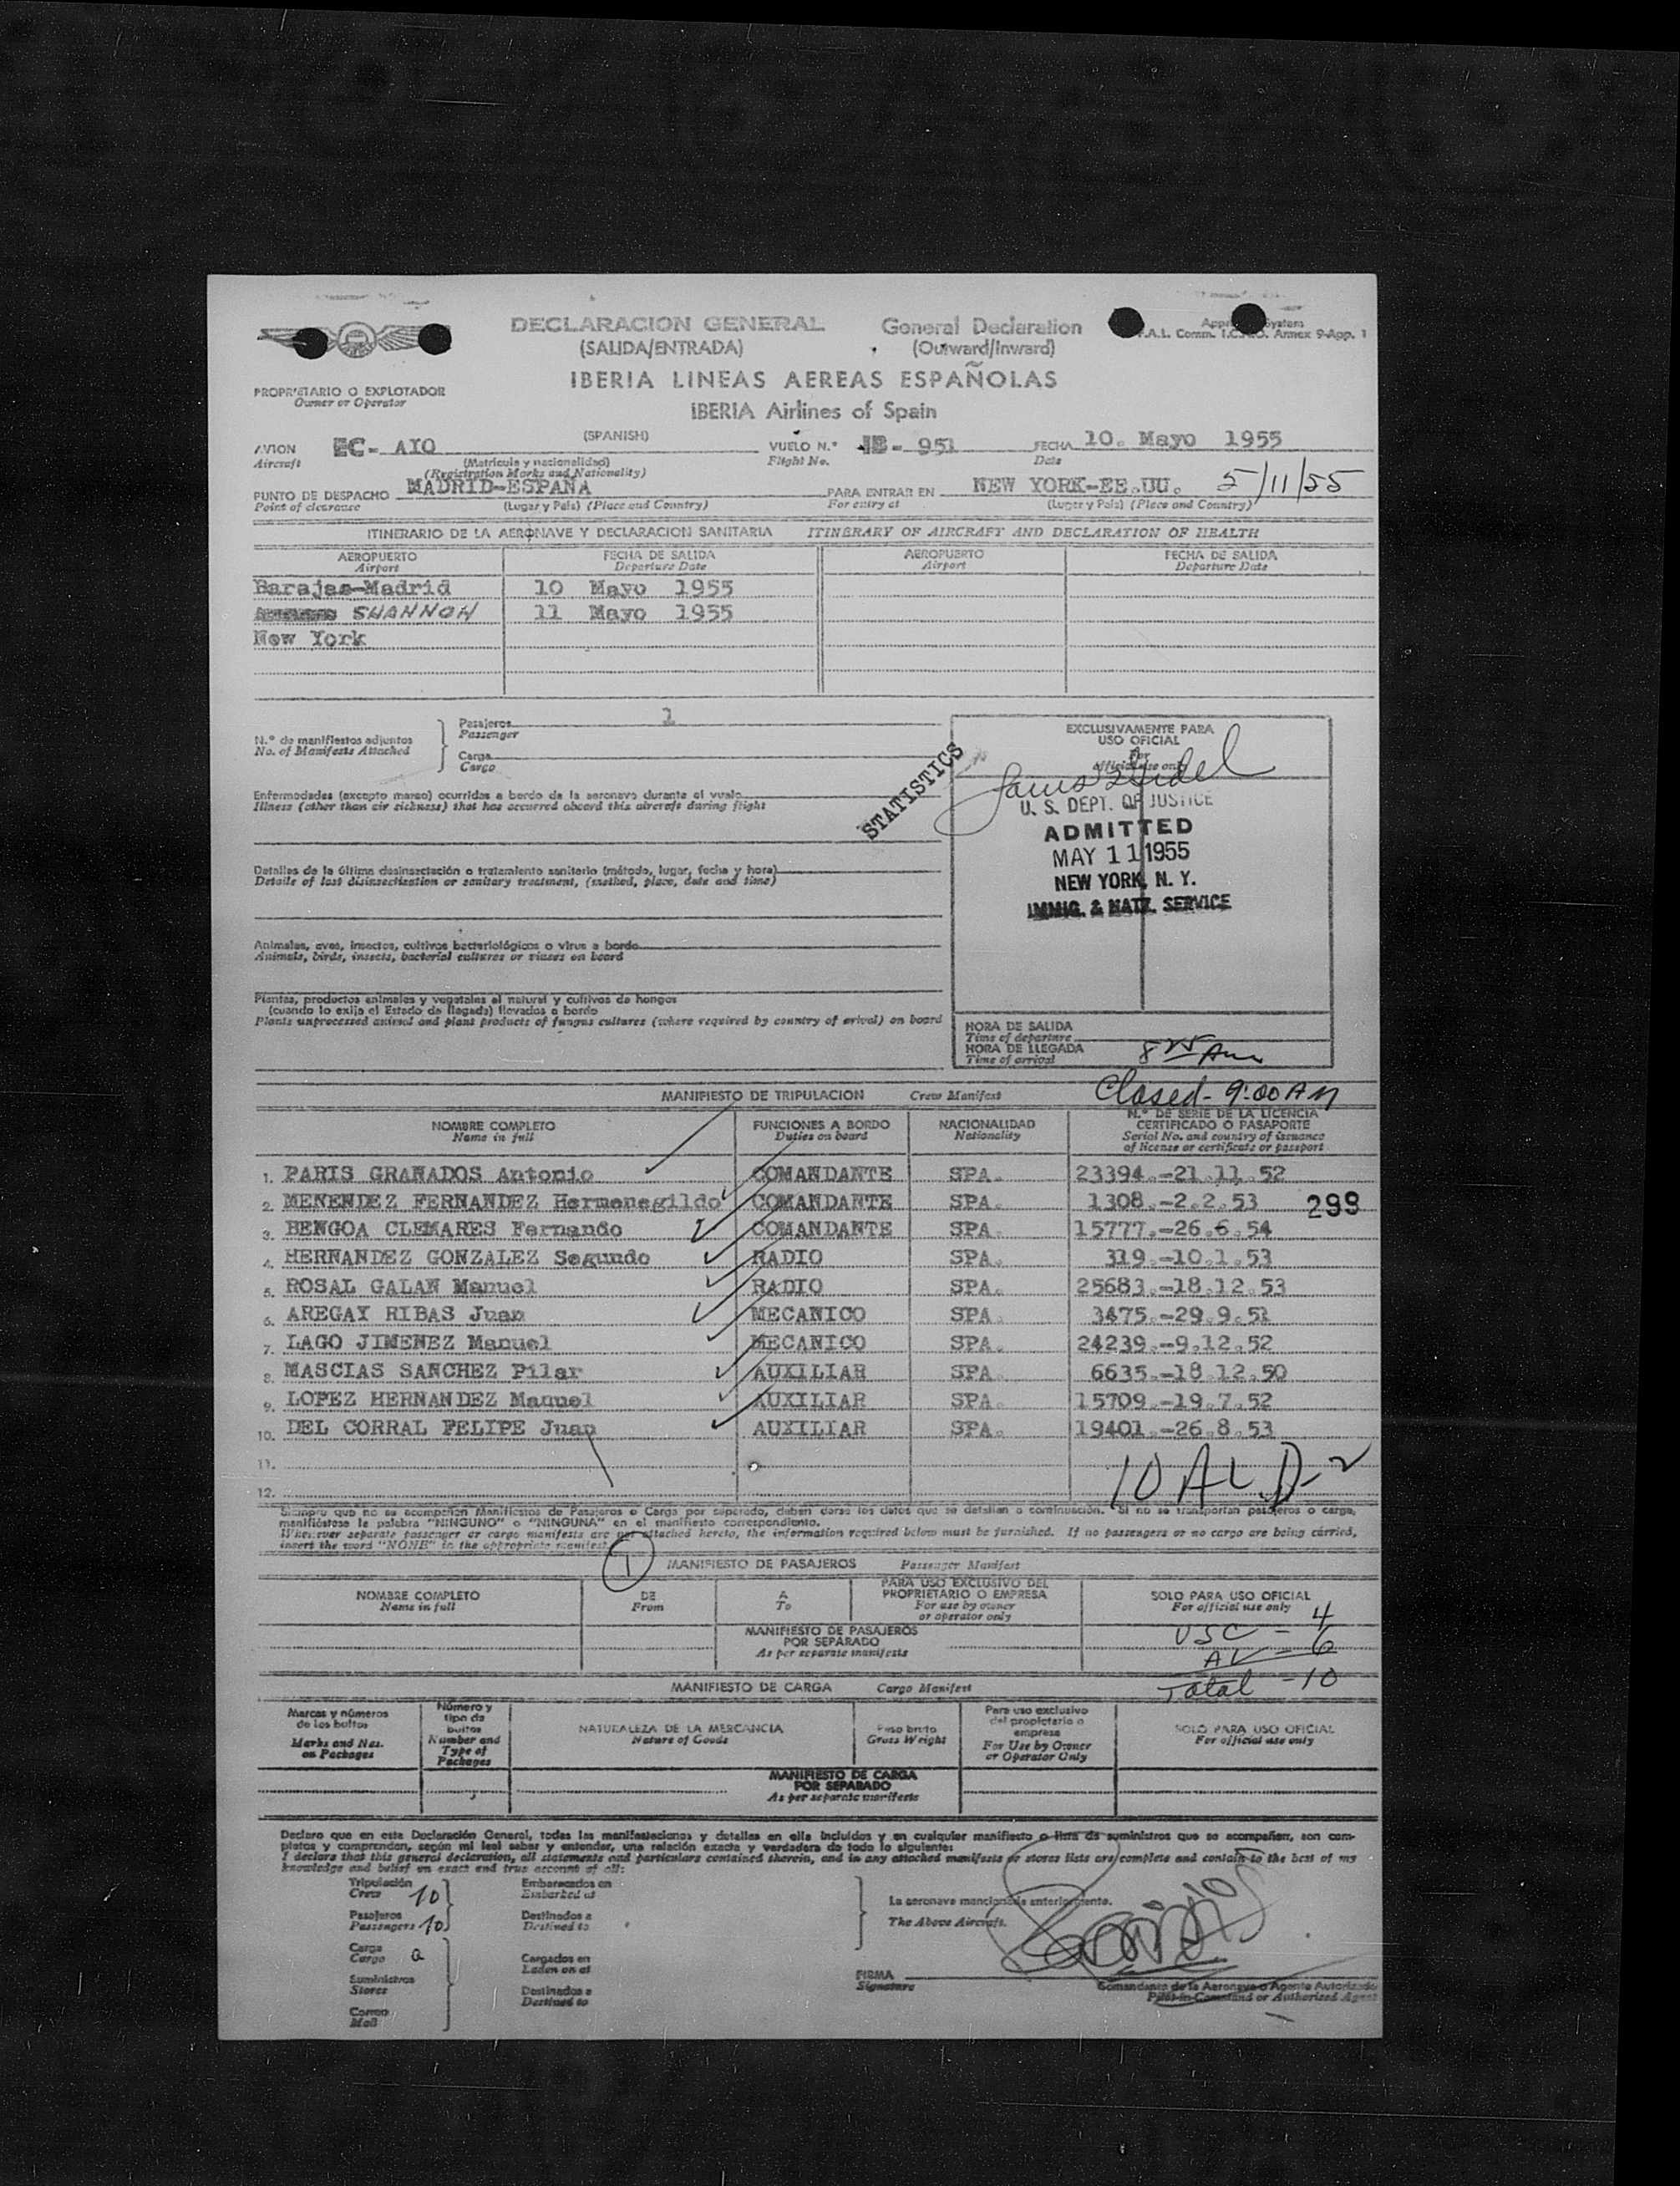 DECLARACION GENERAL General Declaration
(SALIDA/ENTRADA) (Outward/Inward)
Annex 9-App. 1
IBERIA LINEAS AEREAS ESPAÑOLAS
PROPRIETARIO O EXPLOTADOR
Owner or Operator
IBERIA Airlines of Spain
(SPANISH)
AVION EC- AIO VUELO N.º IB- 951 FECHA 10. Mayo 1955
Aircraft (Matricula y nacionalidad) Flight No. Date
(Registration Marks and Nationality)
PUNTO DE DESPACHO MADRID-ESPAÑA PARA ENTRAR EN NEW YORK-EE.UU. 5/11/55
Point of clearance (Lugar y País) (Place and Country) For entry at (Lugar y País) (Place and Country)
ITINERARIO DE LA AERONAVE Y DECLARACION SANITARIA ITINERARY OF AIRCRAFT AND DECLARATION OF HEALTH
AEROPUERTO FECHA DE SALIDA AEROPUERTO FECHA DE SALIDA
Airport Departure Date Airport Departure Date
Barajas-Madrid 10 Mayo 1955
SHANNON 11 Mayo 1955
New York
Pasajeros 1
Passenger
N.º de manifiestos adjuntos
No. of Manifests Attached
Carga
Cargo
STATISTICS
EXCLUSIVAMENTE PARA
USO OFICIAL
For
official use only
U. S. DEPT. OF JUSTICE
ADMITTED
MAY 11 1955
NEW YORK, N. Y.
IMMIG. & NATZ. SERVICE
Enfermedades (excepto mareo) ocurridas a bordo de la aeronave durante el vuelo
Illness (other than air sickness) that has occurred aboard this aircraft during flight
Detalles de la última desinsectación o tratamiento sanitario (método, lugar, fecha y hora)
Details of last disinsectization or sanitary treatment, (method, place, date and time)
Animales, aves, insectos, cultivos bacteriológicos o virus a bordo
Animals, birds, insects, bacterial cultures or viuses on board
Plantas, productos animales y vegetales al natural y cultivos de hongos
(cuando lo exija el Estado de llegada) llevados a bordo
Plants unprocessed animal and plant products of fungus cultures (where required by country of arival) on board
HORA DE SALIDA
Time of departure
HORA DE LLEGADA 8 25 Am
Time of arrival
Closed - 9:00 AM
MANIFIESTO DE TRIPULACION Crew Manifest
NOMBRE COMPLETO FUNCIONES A BORDO NACIONALIDAD N.º DE SERIE DE LA LICENCIA
Name in full Duties on board Nationality CERTIFICADO O PASAPORTE
Serial No. and country of issuance
of license or certificate or passport
1. PARIS GRANADOS Antonio COMANDANTE SPA. 23394.-21.11.52
2. MENENDEZ FERNANDEZ Hermenegildo COMANDANTE SPA. 1308.-2.2.53 299
3. BENGOA CLEMARES Fernando COMANDANTE SPA. 15777.-26.6.54
4. HERNANDEZ GONZALEZ Segundo RADIO SPA. 319.-10.1.53
5. ROSAL GALAN Manuel RADIO SPA. 25683.-18.12.53
6. AREGAY RIBAS Juan MECANICO SPA. 3475.-29.9.51
7. LAGO JIMENEZ Manuel MECANICO SPA. 24239.-9.12.52
8. MASCIAS SANCHEZ Pilar AUXILIAR SPA. 6635.-18.12.50
9. LOPEZ HERNANDEZ Manuel AUXILIAR SPA. 15709.-19.7.52
10. DEL CORRAL FELIPE Juan AUXILIAR SPA. 19401.-26.8.53
11.
12.
Siempre que no se acompañen Manifiestos de Pasajeros o Carga por separado, deben darse los datos que se detallan a continuación. Si no se transportan pasajeros o carga,
manifiéstese la palabra "NINGUNO" o "NINGUNA" en el manifiesto correspondiente.
Wherever separate passenger or cargo manifests are not attached hereto, the information required below must be furnished. If no passengers or no cargo are being carried,
insert the word "NONE" in the appropriate manifest.
1 MANIFIESTO DE PASAJEROS Passenger Manifest
NOMBRE COMPLETO DE A PARA USO EXCLUSIVO DEL SOLO PARA USO OFICIAL
Name in full From To PROPRIETARIO O EMPRESA For official use only
For use by owner
or operator only
MANIFIESTO DE PASAJEROS USC - 4
POR SEPARADO
As per separate manifests AL - 6
Total - 10
MANIFIESTO DE CARGA Cargo Manifest
Marcas y números de los bultos
Marks and Nos. on Packages
Número y tipo de bultos
Number and Type of Packages
NATURALEZA DE LA MERCANCIA
Nature of Goods
Peso bruto
Gross Weight
Para uso exclusivo del propietario o empresa
For Use by Owner or Operator Only
SOLO PARA USO OFICIAL
For official use only
MANIFIESTO DE CARGA
POR SEPARADO
As per separate manifests
Declaro que en esta Declaración General, todas las manifestaciones y detalles en ella incluidos y en cualquier manifiesto o lista de suministros que se acompañen, son com-
pletos y comprenden, según mi leal saber y entender, una relación exacta y verdadera de todo lo siguiente:
I declare that this general declaration, all statements and particulars contained therein, and in any attached manifests or stores lists are complete and contain to the best of my
knowledge and belief on exact and true account of all:
Tripulación Embarcados en
Crew 10 Embarked at
La aeronave mencionada anteriormente.
Pasajeros Destinados a
Passengers 10 Destined to The Above Aircraft.
Carga Cargados en
Cargo Laden on at
Suministros Destinados a
Stores Destined to
FIRMA
Signature
Comandante de la Aeronave o Agente Autorizado
Pilot-in-Command or Authorized Agent
Correo
Mail